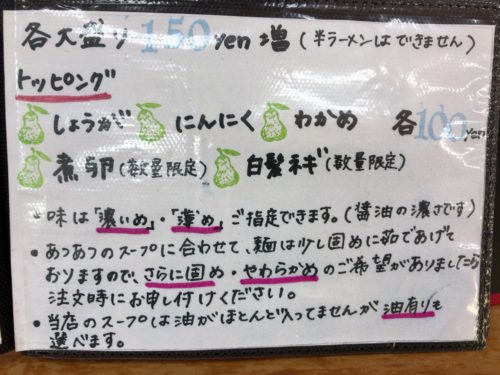 各大盛り 150yen増 (半ラーメンはできません)
トッピング
しょうが にんにく わかめ 各100yen
煮卵(数量限定) 白髪ネギ(数量限定)
・味は「濃いめ」・「薄め」ご指定できます。(醤油の濃さです)
・あつあつのスープに合わせて、麺は少し固めに茹であげて
おりますので、さらに固め・やわらかめのご希望がありましたら
注文時にお申し付けください。
・当店のスープは油がほとんど入ってませんが油有りも
選べます。